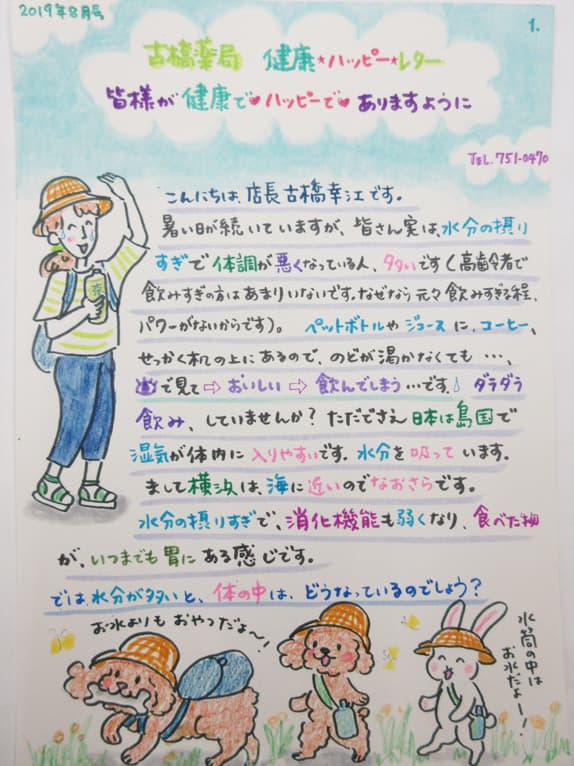 2019年8月号
1.
古橋薬局 健康★ハッピー★レター
皆様が健康で♥ハッピーで♥ありますように
TEL.751-0470
こんにちは、店長古橋幸江です。
暑い日が続いていますが、皆さん実は、水分の摂り
すぎで体調が悪くなっている人、多いです(高齢者で
飲みすぎの方はあまりいないです。なぜなら元々飲みすぎる程、
パワーがないからです)。 ペットボトルやジュースに、コーヒー、
せっかく机の上にあるので、のどが渇かなくても…、
で見て⇨おいしい⇨飲んでしまう…です。ダラダラ
飲み、していませんか?ただでさえ日本は島国で
湿気が体内に入りやすいです。水分を吸っています。
まして横浜は、海に近いのでなおさらです。
水分の摂りすぎで、消化機能も弱くなり、食べた物
が、いつまでも胃にある感じです。
では水分が多いと、体の中は、どうなっているのでしょう?
茶
お水よりもおやつだよ〜!
水筒の中は
お水だよー!